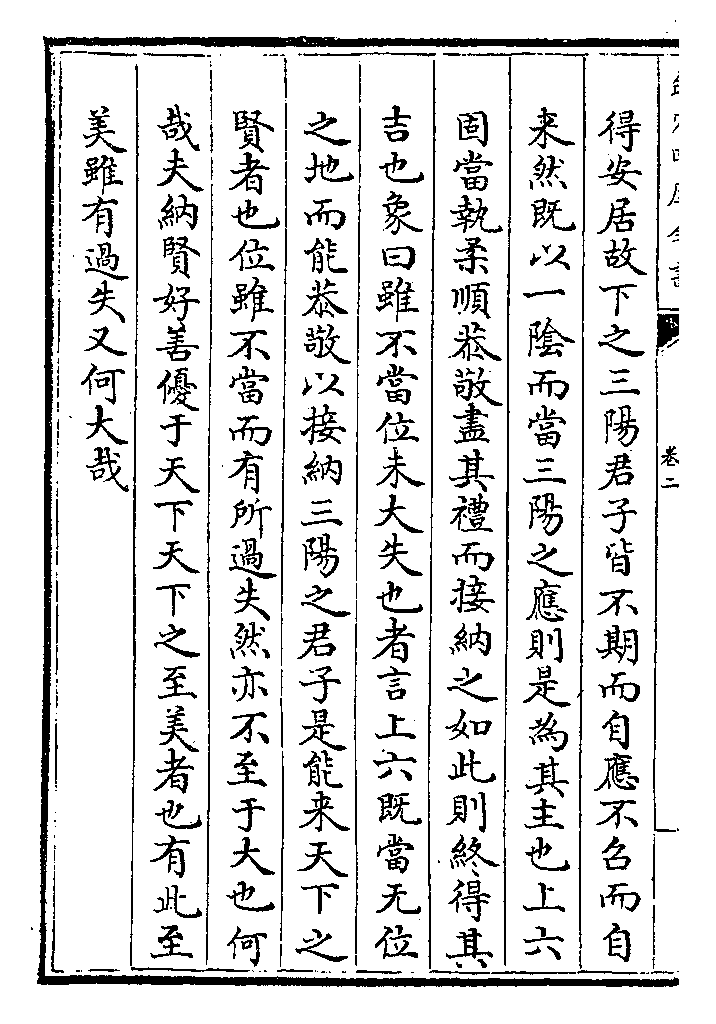 卷二
得安居故下之三陽君子皆不期而自應不召而自
来然既以一陰而當三陽之應則是為其主也上六
固當執柔順恭敬盡其禮而接納之如此則終得其
吉也象曰雖不當位未大失也者言上六既當无位
之地而能恭敬以接納三陽之君子是能来天下之
賢者也位雖不當而有所過失然亦不至于大也何
哉夫納賢好善優于天下天下之至美者也有此至
美雖有過失又何大哉